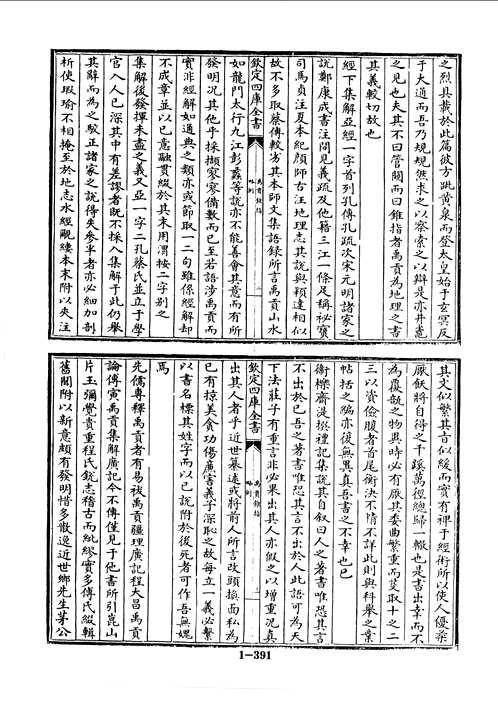 之烈具載於此篇彼方跐黄泉而登太皇始于玄冥反
于大通而吾乃規規然求之以察索之以辯是亦井鼃
之見也夫其不曰管闚而曰錐指者禹貢為地理之書
其義較切故也
經下集解亞經一字首列孔傳孔疏次宋元明諸家之
說鄭康成書注間見義疏及他籍三江一條及稱祕寶
司馬貞注夏本紀顔師古注地理志其說與穎達相似
故不多取蔡傳較劣其本師文集語録所言禹貢山水
欽定四庫全書
禹貢錐指
略例
如龍門太行九江彭蠡等說亦不能善會其意而有所
發明况其他乎採擷寥寥備數而已至若語渉禹貢而
實非經解如通典之類亦或節取一二句雖係經解却
不成章並以已意融貫綴於其末用渭按二字别之
集解後發揮未盡之義又亞一字二孔蔡氏並立于學
官入人已深其中有差謬者既不採入集解于此仍舉
其辭而為之駁正諸家之說得失参半者亦必細加剖
析使瑕瑜不相掩至於地志水經覼縷本末附以夾注
其文似繁其旨似緩而實有裨于經術所以使人優柔
厭飫將自得之千蹊萬徑總歸一轍也是書出幸而不
為覆瓿之物異時必有厭其委曲繁重而芟取十之二
三以資儉腹者首尾衡決不精不詳此則與科舉之業
帖括之編亦復無異真吾書之不幸也已
衛櫟齋湜撰禮記集說其自叙曰人之著書唯恐其言
不出於已吾之著書唯恐其言不出於人此語可為天
下法莊子有重言非必果出其人亦假之以增重况真
欽定四庫全書
禹貢錐指
略例
出其人者乎近世纂述或將前人所言改頭換面私為
已有掠美貪功傷廉害義予深恥之故每立一義必繫
以書名標其姓字而以已說附於後死者可作吾無媿
焉
先儒專釋禹貢者有易祓禹貢疆理廣記程大昌禹貢
論傅寅禹貢集解廣記今不傳僅見于他書所引崑山
片玉彌覺貴重程氏鋭志稽古而紕繆實多傅氏綴輯
舊聞附以新意頗有發明惜多散逸近世鄉先生茅公
1-391